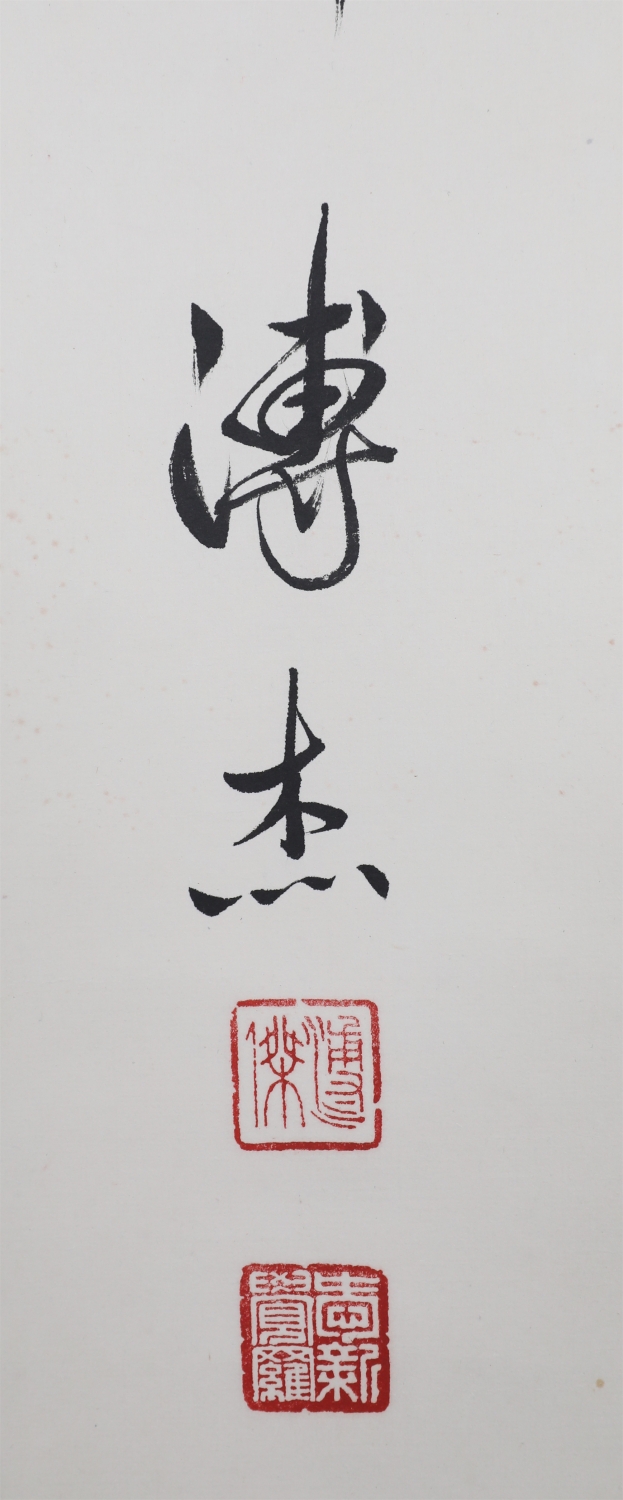 溥杰
溥傑
愛新覺羅